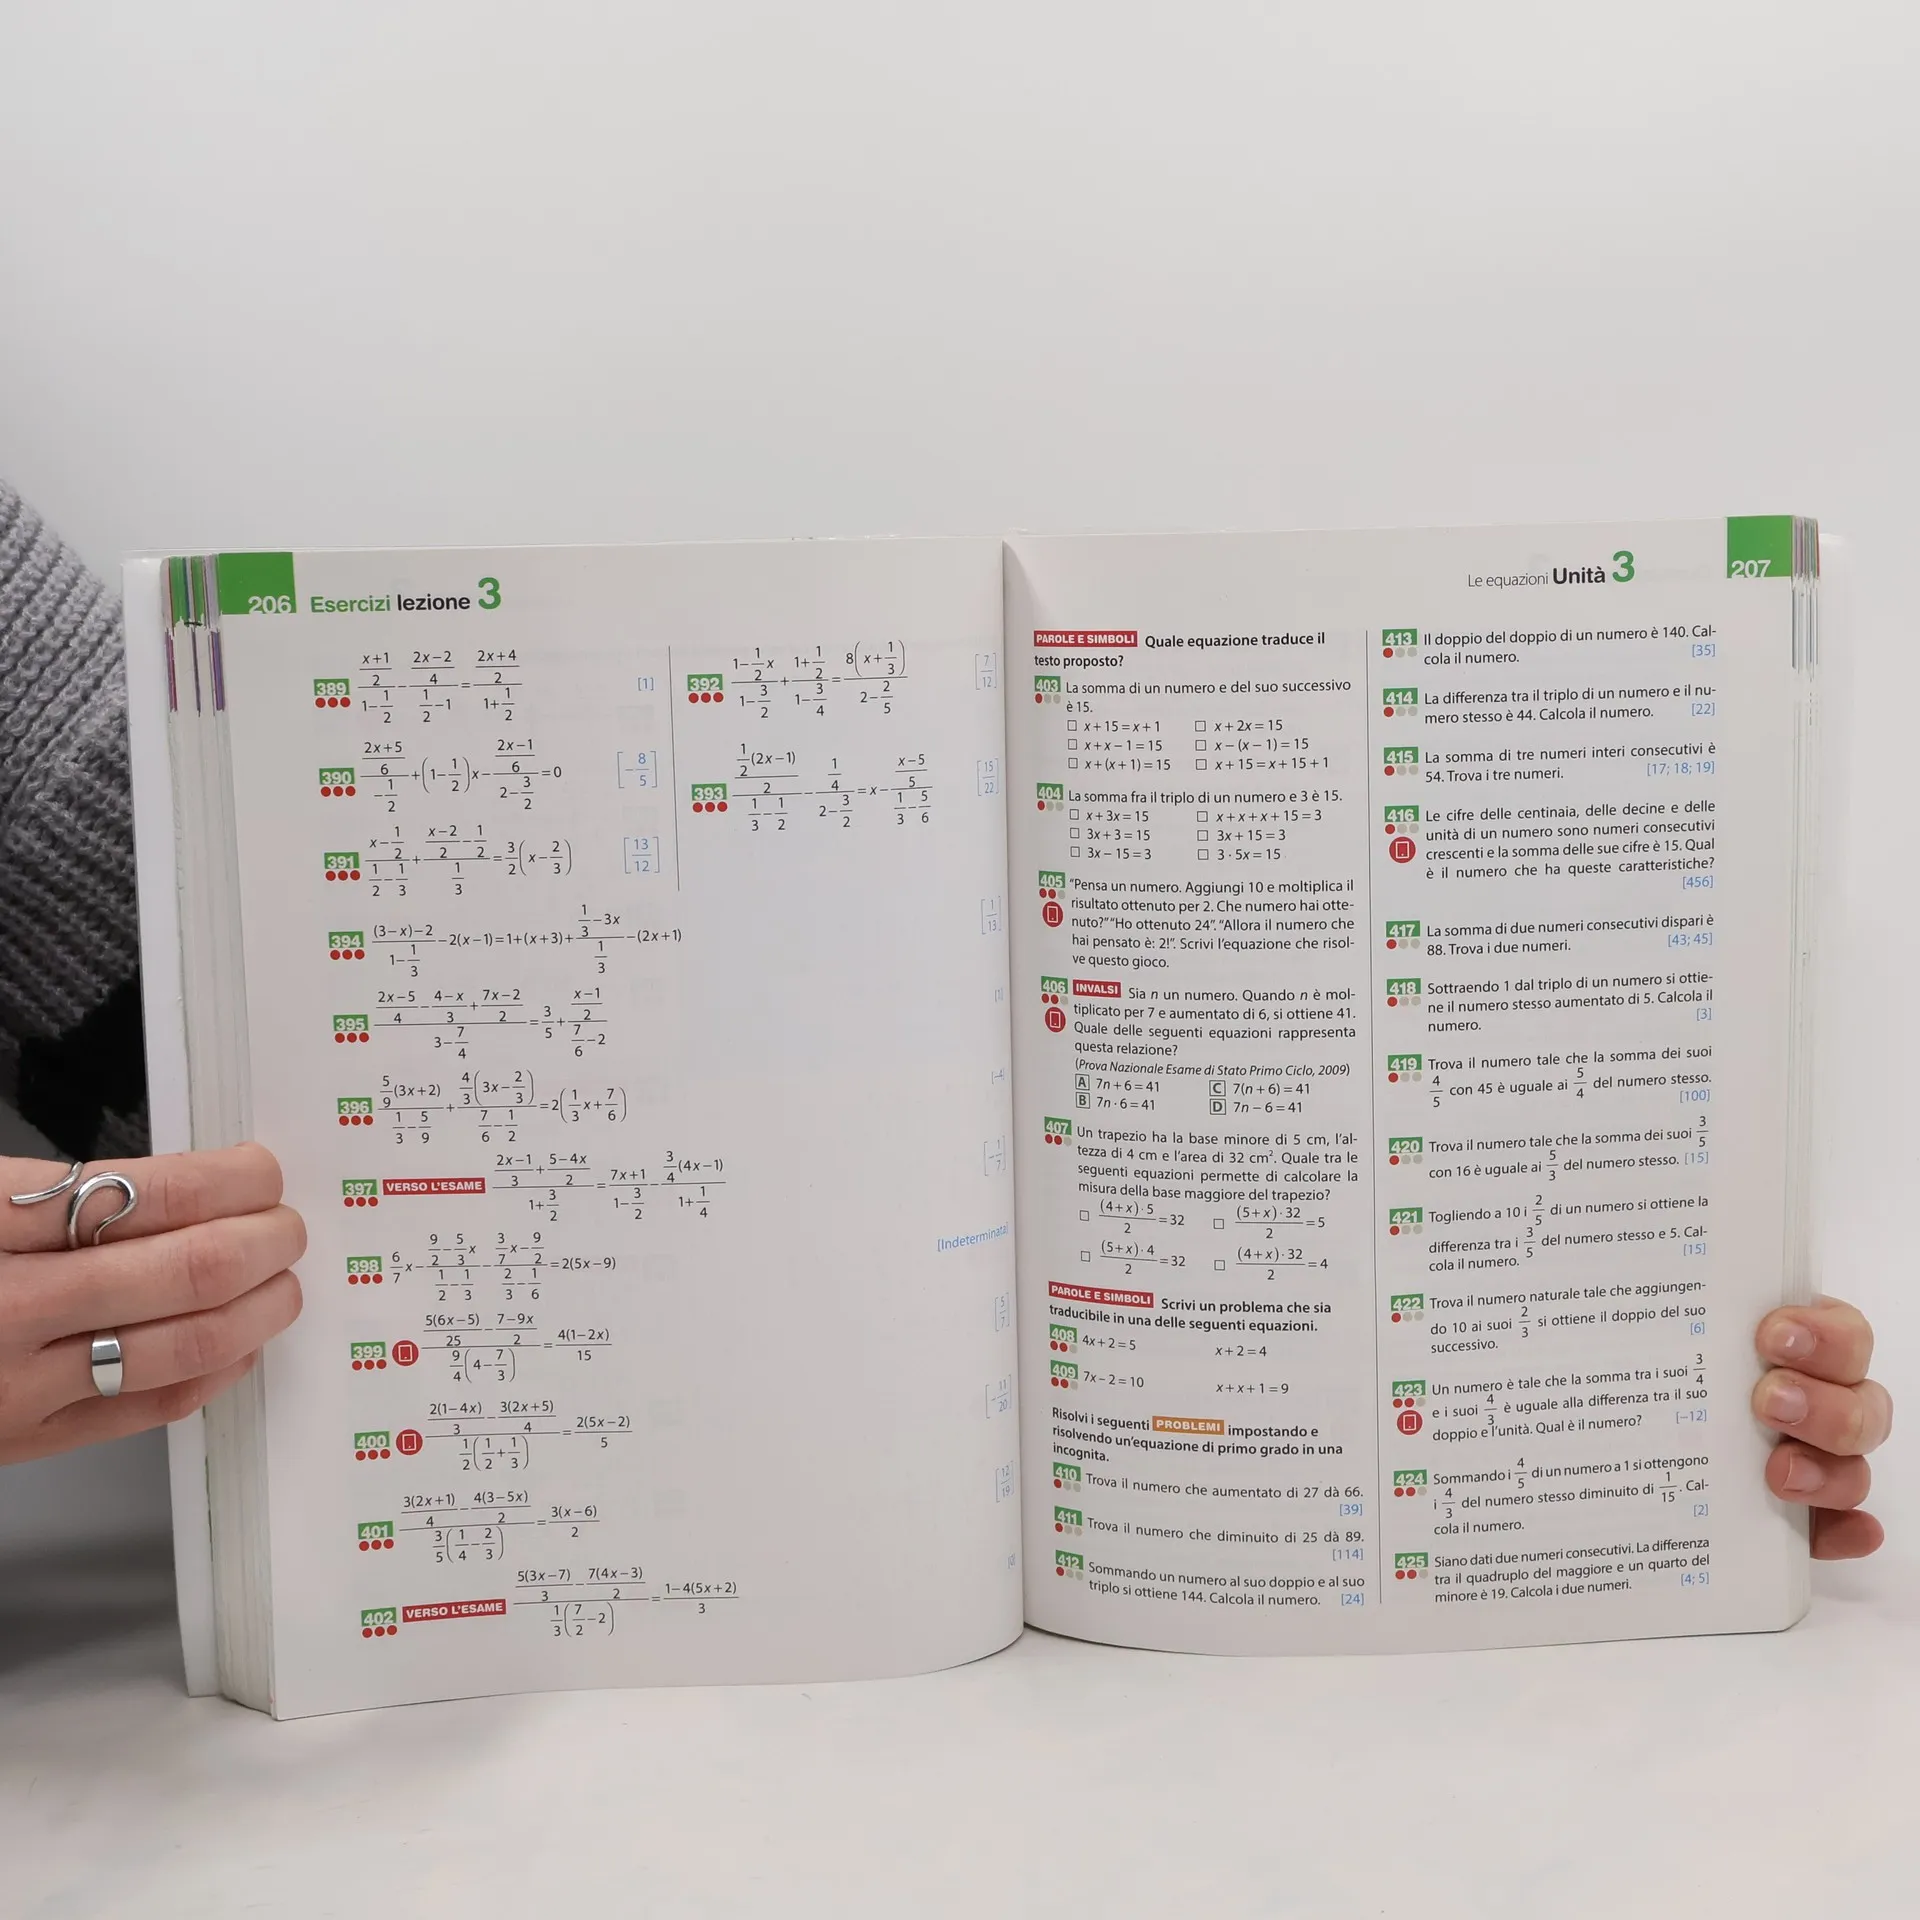 206 Esercizi lezione 3
389 \frac{\frac{x+1}{2}}{1-\frac{1}{2}} - \frac{\frac{2x-2}{4}}{\frac{1}{2}-1} = \frac{\frac{2x+4}{2}}{1+\frac{1}{2}} [1]
390 \frac{\frac{2x+5}{6}}{-\frac{1}{2}} + (1-\frac{1}{2})x - \frac{\frac{2x-1}{6}}{2-\frac{3}{2}} = 0 [-\frac{8}{5}]
391 \frac{x-\frac{1}{2}}{\frac{1}{2}-\frac{1}{3}} + \frac{\frac{x-2}{2}-\frac{1}{2}}{\frac{1}{3}} = \frac{3}{2}(x-\frac{2}{3}) [\frac{13}{12}]
392 \frac{1-\frac{1}{2}x}{1-\frac{3}{2}} + \frac{1+\frac{1}{2}}{1-\frac{3}{4}} = \frac{8(x+\frac{1}{3})}{2-\frac{2}{5}} [\frac{7}{12}]
393 \frac{\frac{\frac{1}{2}(2x-1)}{2}}{\frac{1}{3}-\frac{1}{2}} - \frac{\frac{1}{4}}{2-\frac{3}{2}} = x - \frac{\frac{x-5}{5}}{\frac{1}{3}-\frac{5}{6}} [\frac{15}{22}]
394 \frac{(3-x)-2}{1-\frac{1}{3}} - 2(x-1) = 1+(x+3) + \frac{\frac{1}{3}-3x}{\frac{1}{3}} - (2x+1) [\frac{1}{13}]
395 \frac{\frac{2x-5}{4}-\frac{4-x}{3}+\frac{7x-2}{2}}{3-\frac{7}{4}} = \frac{3}{5} + \frac{\frac{x-1}{2}}{\frac{7}{6}-2} [1]
396 \frac{\frac{5}{9}(3x+2)}{\frac{1}{3}-\frac{5}{9}} + \frac{\frac{4}{3}(3x-\frac{2}{3})}{\frac{7}{6}-\frac{1}{2}} = 2(\frac{1}{3}x+\frac{7}{6}) [-4]
397 VERSO L'ESAME \frac{\frac{2x-1}{3}+\frac{5-4x}{2}}{1+\frac{3}{2}} = \frac{7x+1}{1-\frac{3}{2}} - \frac{\frac{3}{4}(4x-1)}{1+\frac{1}{4}} [-\frac{1}{7}]
398 \frac{6}{7}x - \frac{\frac{9}{2}-\frac{5}{3}x}{\frac{1}{2}-\frac{1}{3}} - \frac{\frac{3}{7}x-\frac{9}{2}}{\frac{2}{3}-\frac{1}{6}} = 2(5x-9) [Indeterminata]
399 \frac{\frac{5(6x-5)}{25}-\frac{7-9x}{2}}{\frac{9}{4}(4-\frac{7}{3})} = \frac{4(1-2x)}{15} [\frac{5}{7}]
400 \frac{\frac{2(1-4x)}{3}-\frac{3(2x+5)}{4}}{\frac{1}{2}(\frac{1}{2}+\frac{1}{3})} = \frac{2(5x-2)}{5} [-\frac{11}{20}]
401 \frac{\frac{3(2x+1)}{4}-\frac{4(3-5x)}{2}}{\frac{3}{5}(\frac{1}{4}-\frac{2}{3})} = \frac{3(x-6)}{2} [\frac{12}{19}]
402 VERSO L'ESAME \frac{\frac{5(3x-7)}{3}-\frac{7(4x-3)}{2}}{\frac{1}{3}(\frac{7}{2}-2)} = \frac{1-4(5x+2)}{3} [0]
Le equazioni Unità 3 207
PAROLE E SIMBOLI Quale equazione traduce il
testo proposto?
403 La somma di un numero e del suo successivo
è 15.
☐ x+15=x+1 ☐ x+2x=15
☐ x+x−1=15 ☐ x−(x−1)=15
☐ x+(x+1)=15 ☐ x+15=x+15+1
404 La somma fra il triplo di un numero e 3 è 15.
☐ x+3x=15 ☐ x+x+x+15=3
☐ 3x+3=15 ☐ 3x+15=3
☐ 3x−15=3 ☐ 3·5x=15
405 "Pensa un numero. Aggiungi 10 e moltiplica il
risultato ottenuto per 2. Che numero hai otte-
nuto?" "Ho ottenuto 24". "Allora il numero che
hai pensato è: 2!". Scrivi l'equazione che risol-
ve questo gioco.
406 INVALSI Sia n un numero. Quando n è mol-
tiplicato per 7 e aumentato di 6, si ottiene 41.
Quale delle seguenti equazioni rappresenta
questa relazione?
(Prova Nazionale Esame di Stato Primo Ciclo, 2009)
A 7n+6=41 C 7(n+6)=41
B 7n·6=41 D 7n−6=41
407 Un trapezio ha la base minore di 5 cm, l'al-
tezza di 4 cm e l'area di 32 cm². Quale tra le
seguenti equazioni permette di calcolare la
misura della base maggiore del trapezio?
☐ \frac{(4+x)·5}{2}=32 ☐ \frac{(5+x)·32}{2}=5
☐ \frac{(5+x)·4}{2}=32 ☐ \frac{(4+x)·32}{2}=4
PAROLE E SIMBOLI Scrivi un problema che sia
traducibile in una delle seguenti equazioni.
408 4x+2=5 x+2=4
409 7x−2=10 x+x+1=9
Risolvi i seguenti PROBLEMI impostando e
risolvendo un'equazione di primo grado in una
incognita.
410 Trova il numero che aumentato di 27 dà 66.
[39]
411 Trova il numero che diminuito di 25 dà 89.
[114]
412 Sommando un numero al suo doppio e al suo
triplo si ottiene 144. Calcola il numero. [24]
413 Il doppio del doppio di un numero è 140. Cal-
cola il numero. [35]
414 La differenza tra il triplo di un numero e il nu-
mero stesso è 44. Calcola il numero. [22]
415 La somma di tre numeri interi consecutivi è
54. Trova i tre numeri. [17; 18; 19]
416 Le cifre delle centinaia, delle decine e delle
unità di un numero sono numeri consecutivi
crescenti e la somma delle sue cifre è 15. Qual
è il numero che ha queste caratteristiche?
[456]
417 La somma di due numeri consecutivi dispari è
88. Trova i due numeri. [43; 45]
418 Sottraendo 1 dal triplo di un numero si ottie-
ne il numero stesso aumentato di 5. Calcola il
numero. [3]
419 Trova il numero tale che la somma dei suoi
\frac{4}{5} con 45 è uguale ai \frac{5}{4} del numero stesso.
[100]
420 Trova il numero tale che la somma dei suoi \frac{3}{5}
con 16 è uguale ai \frac{5}{3} del numero stesso. [15]
421 Togliendo a 10 i \frac{2}{5} di un numero si ottiene la
differenza tra i \frac{3}{5} del numero stesso e 5. Cal-
cola il numero. [15]
422 Trova il numero naturale tale che aggiungen-
do 10 ai suoi \frac{2}{3} si ottiene il doppio del suo
successivo. [6]
423 Un numero è tale che la somma tra i suoi \frac{3}{4}
e i suoi \frac{4}{3} è uguale alla differenza tra il suo
doppio e l'unità. Qual è il numero? [−12]
424 Sommando i \frac{4}{5} di un numero a 1 si ottengono
i \frac{4}{3} del numero stesso diminuito di \frac{1}{15}. Cal-
cola il numero. [2]
425 Siano dati due numeri consecutivi. La differenza
tra il quadruplo del maggiore e un quarto del
minore è 19. Calcola i due numeri. [4; 5]